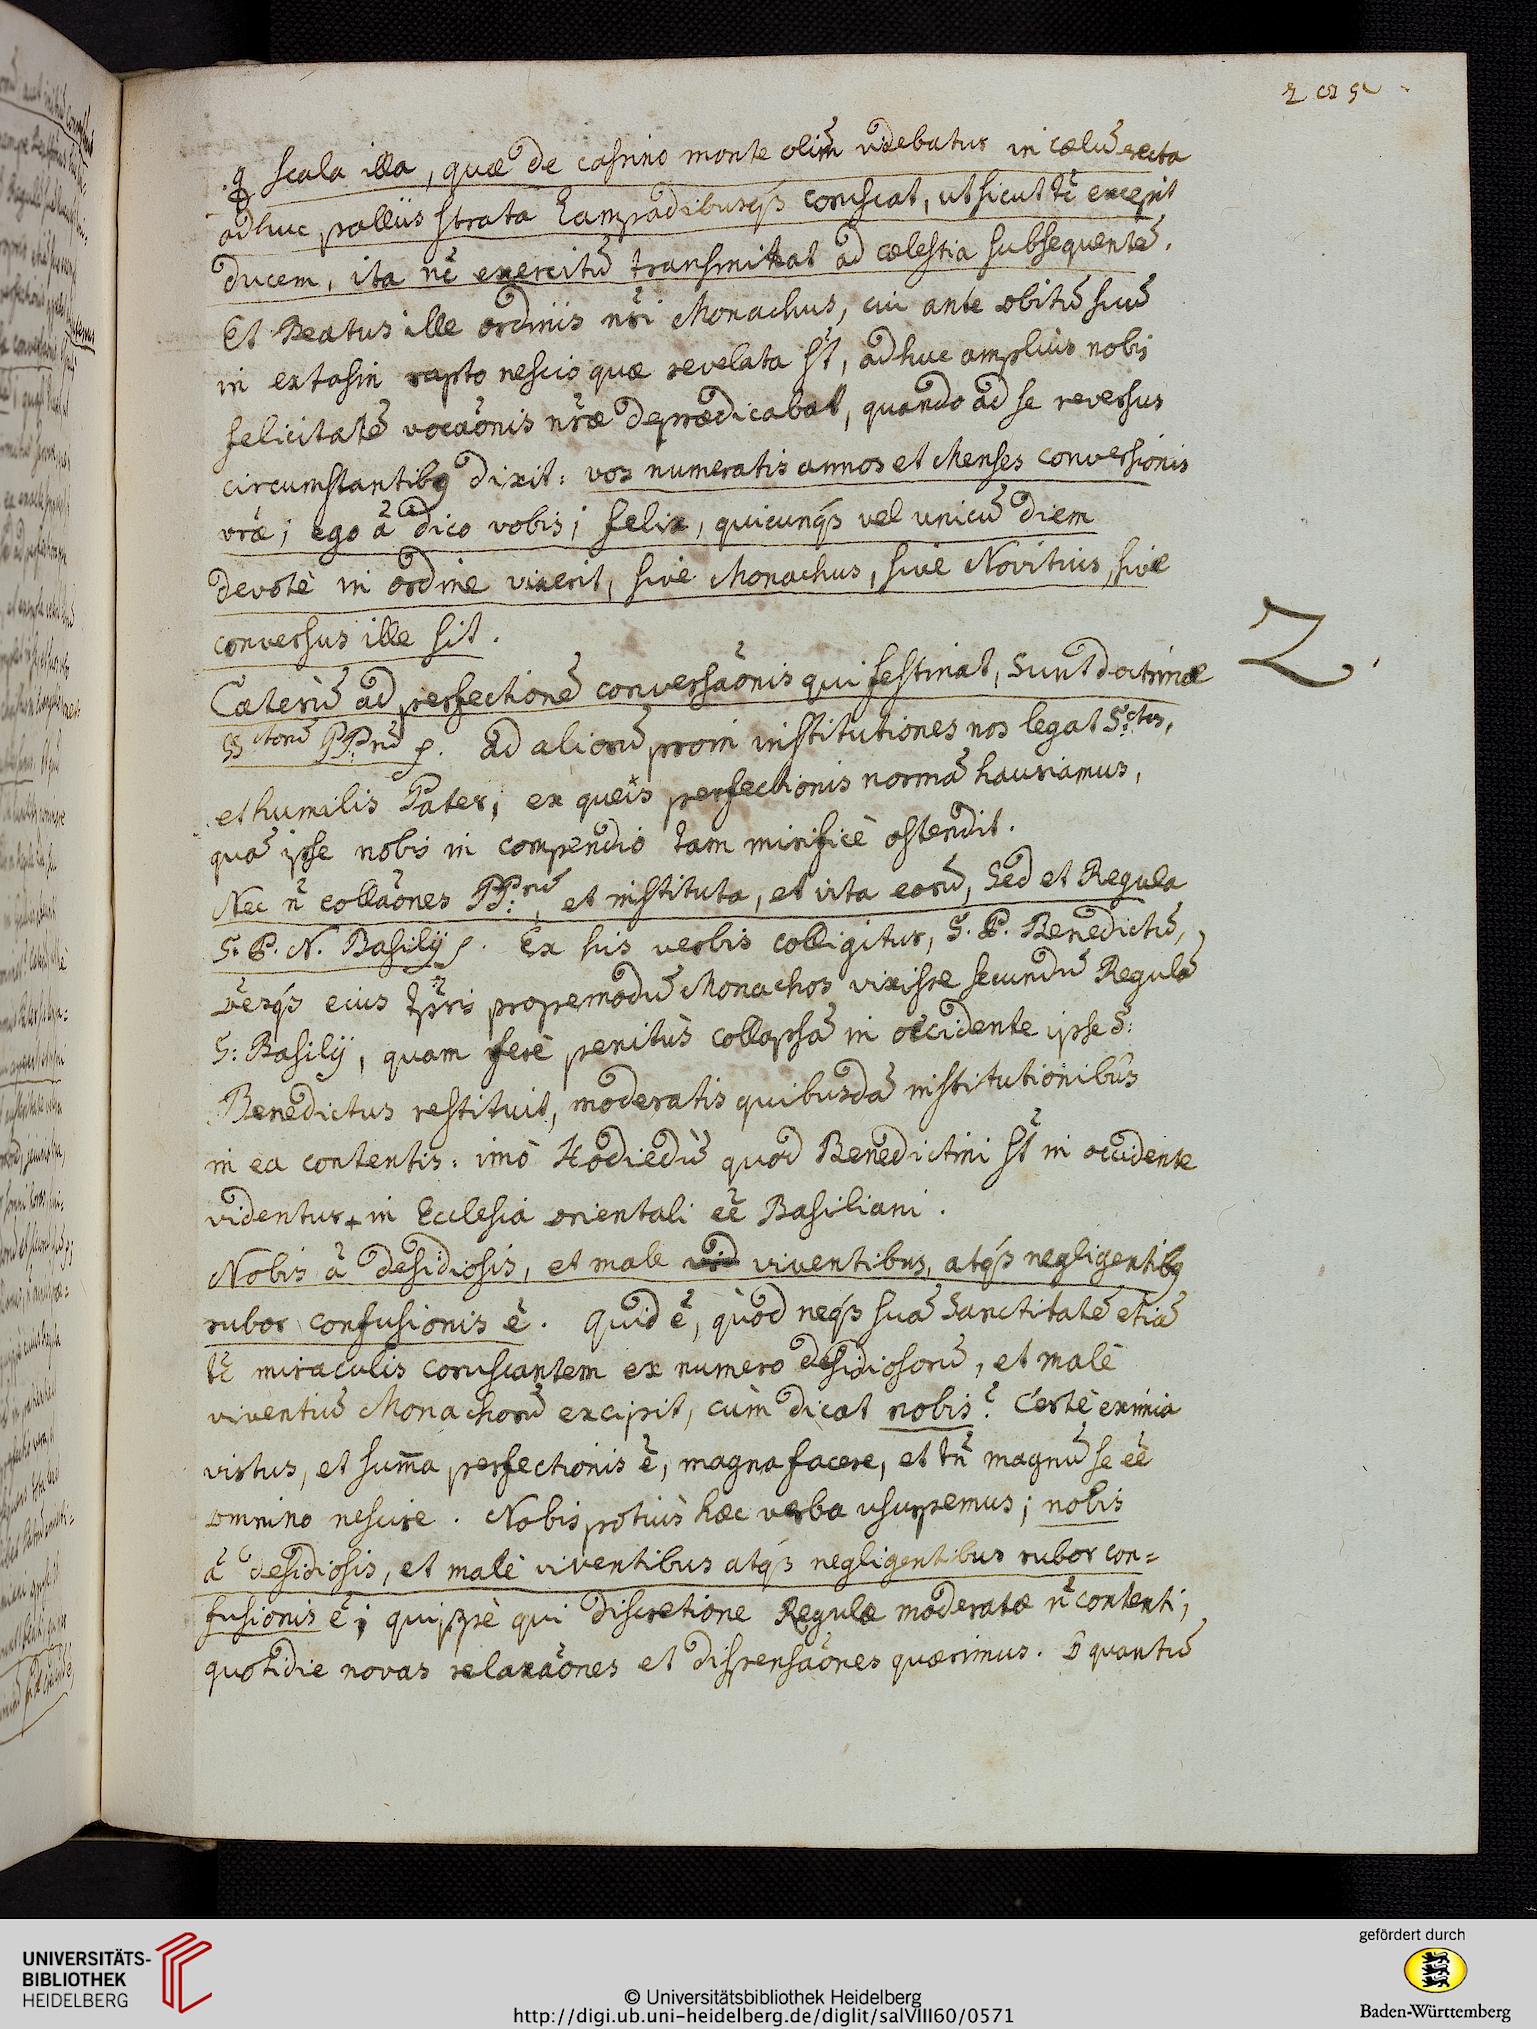 scala illa, quæ de casino monte olim videbatur in cœlū erecta
adhuc palliis strata lampadibusqȝ coruscat, ut sicut tc̃ excepit
ducem, ita nc̃ exercitū transmittat ad cœlestia subsequentē.
Et Beatus ille ordinis nr̃i Monachus, cui ante obitū suū
in extasin rapto nescio quæ revelata st̃, adhuc amplius nobis
felicitatē vocaõnis nr̃æ deprædicabat, quando ad se reversus
circumstantibꝯ dixit: vos numeratis annos et Menses conversionis
vr̃æ; ego ã dico vobis; felix, quicunqȝ vel unicū diem
devotè in ordine vixerit, sive Monachus, sive Novitius, sive
conversus ille sit.
Cæterū ad perfectionē conversaõnis qui festinat, sunt doctrinæ
SSctorū PP.rū. Ad aliorū proin institutiones nos legat S.ctus,
et humilis Pater; ex queîs perfectionis normā hauriamus,
quā ipse nobis in compendio tam mirificè ostendit.
Nec ñ collaõnes PP:rū, et instituta, et vita eorū, Sed et Regula
S. P. N. Basilij. Ex his verbis colligitur, S. P. Benedictū,
eius tp̃ris propemodū Monachos vixisse secundū Regulā
S: Basilij, quam ferè penitùs collapsā in occidente ipse S:
Benedictus restituit, moderatis quibusdā institutionibūs
in ea contentis: imò Hodiedū quod Benedictini st̃ in occidente
videntur + in Ecclesia orientali eẽ Basiliani.
Nobis ã desidiosis, et male vid viventibus, atqȝ negligentibꝯ
rubor confusionis ẽ. Quid ẽ, quòd neqȝ suā Sanctitatē etiā
tc̃ miraculis coruscantem ex numero desidiosorū, et malè
viventiū Monachorū excipit, cùm dicat nobis? Certè eximia
virtus, et sum̃a perfectionis ẽ, magna facere, et tñ magnū se eẽ
omnino nescire. Nobis potiùs hæc verba usurpemus; nobis
ã desidiosis, et malè viventibus atqȝ negligentibus rubor con=
fusionis ẽ; quippè qui discretione Regulæ moderatæ ñ contenti,
quotidie novas relaxaõnes et dispensaõnes quærimus. O quantū
2.
UNIVERSITÄTS-
BIBLIOTHEK
HEIDELBERG
© Universitätsbibliothek Heidelberg
http://digi.ub.uni-heidelberg.de/diglit/salVIII60/0571
gefördert durch
Baden-Württemberg